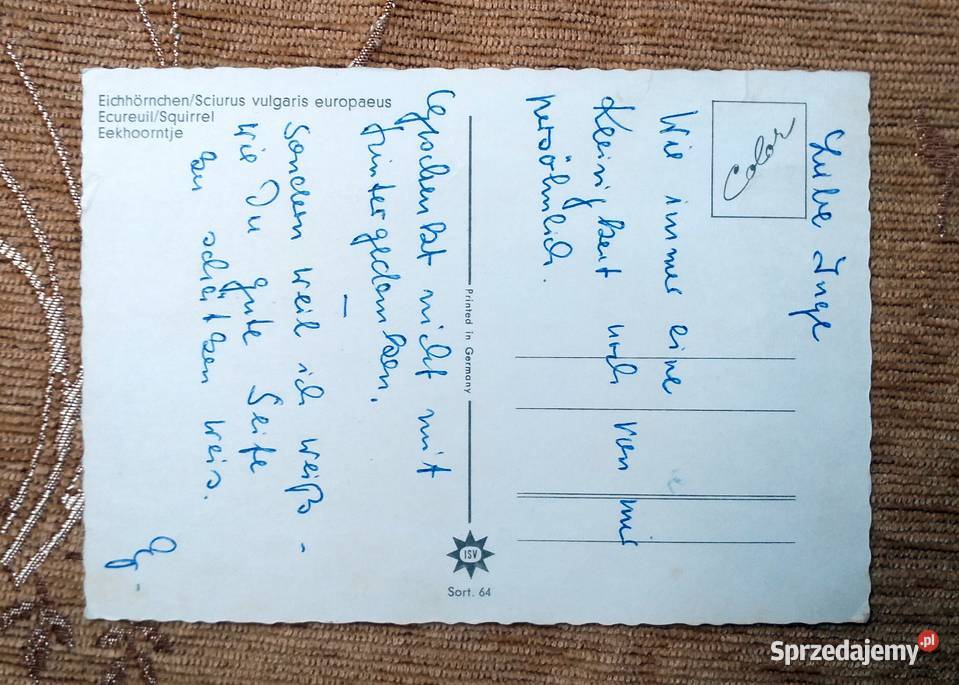 Eichhörnchen/Sciurus vulgaris europaeus
Ecureuil/Squirrel
Eekhoorntje
Color
Printed in Germany
ISV
Sort. 64
Liebe Inge
Wie immer eine
Kleinigkeit nach von mir
persöhnlich.
Geschenkt nicht mit
Hintergedanken,
–
Sondern weil ich weiß -
wie Du gute Seite
zu schätzen weis.
Sprzedajemy.pl